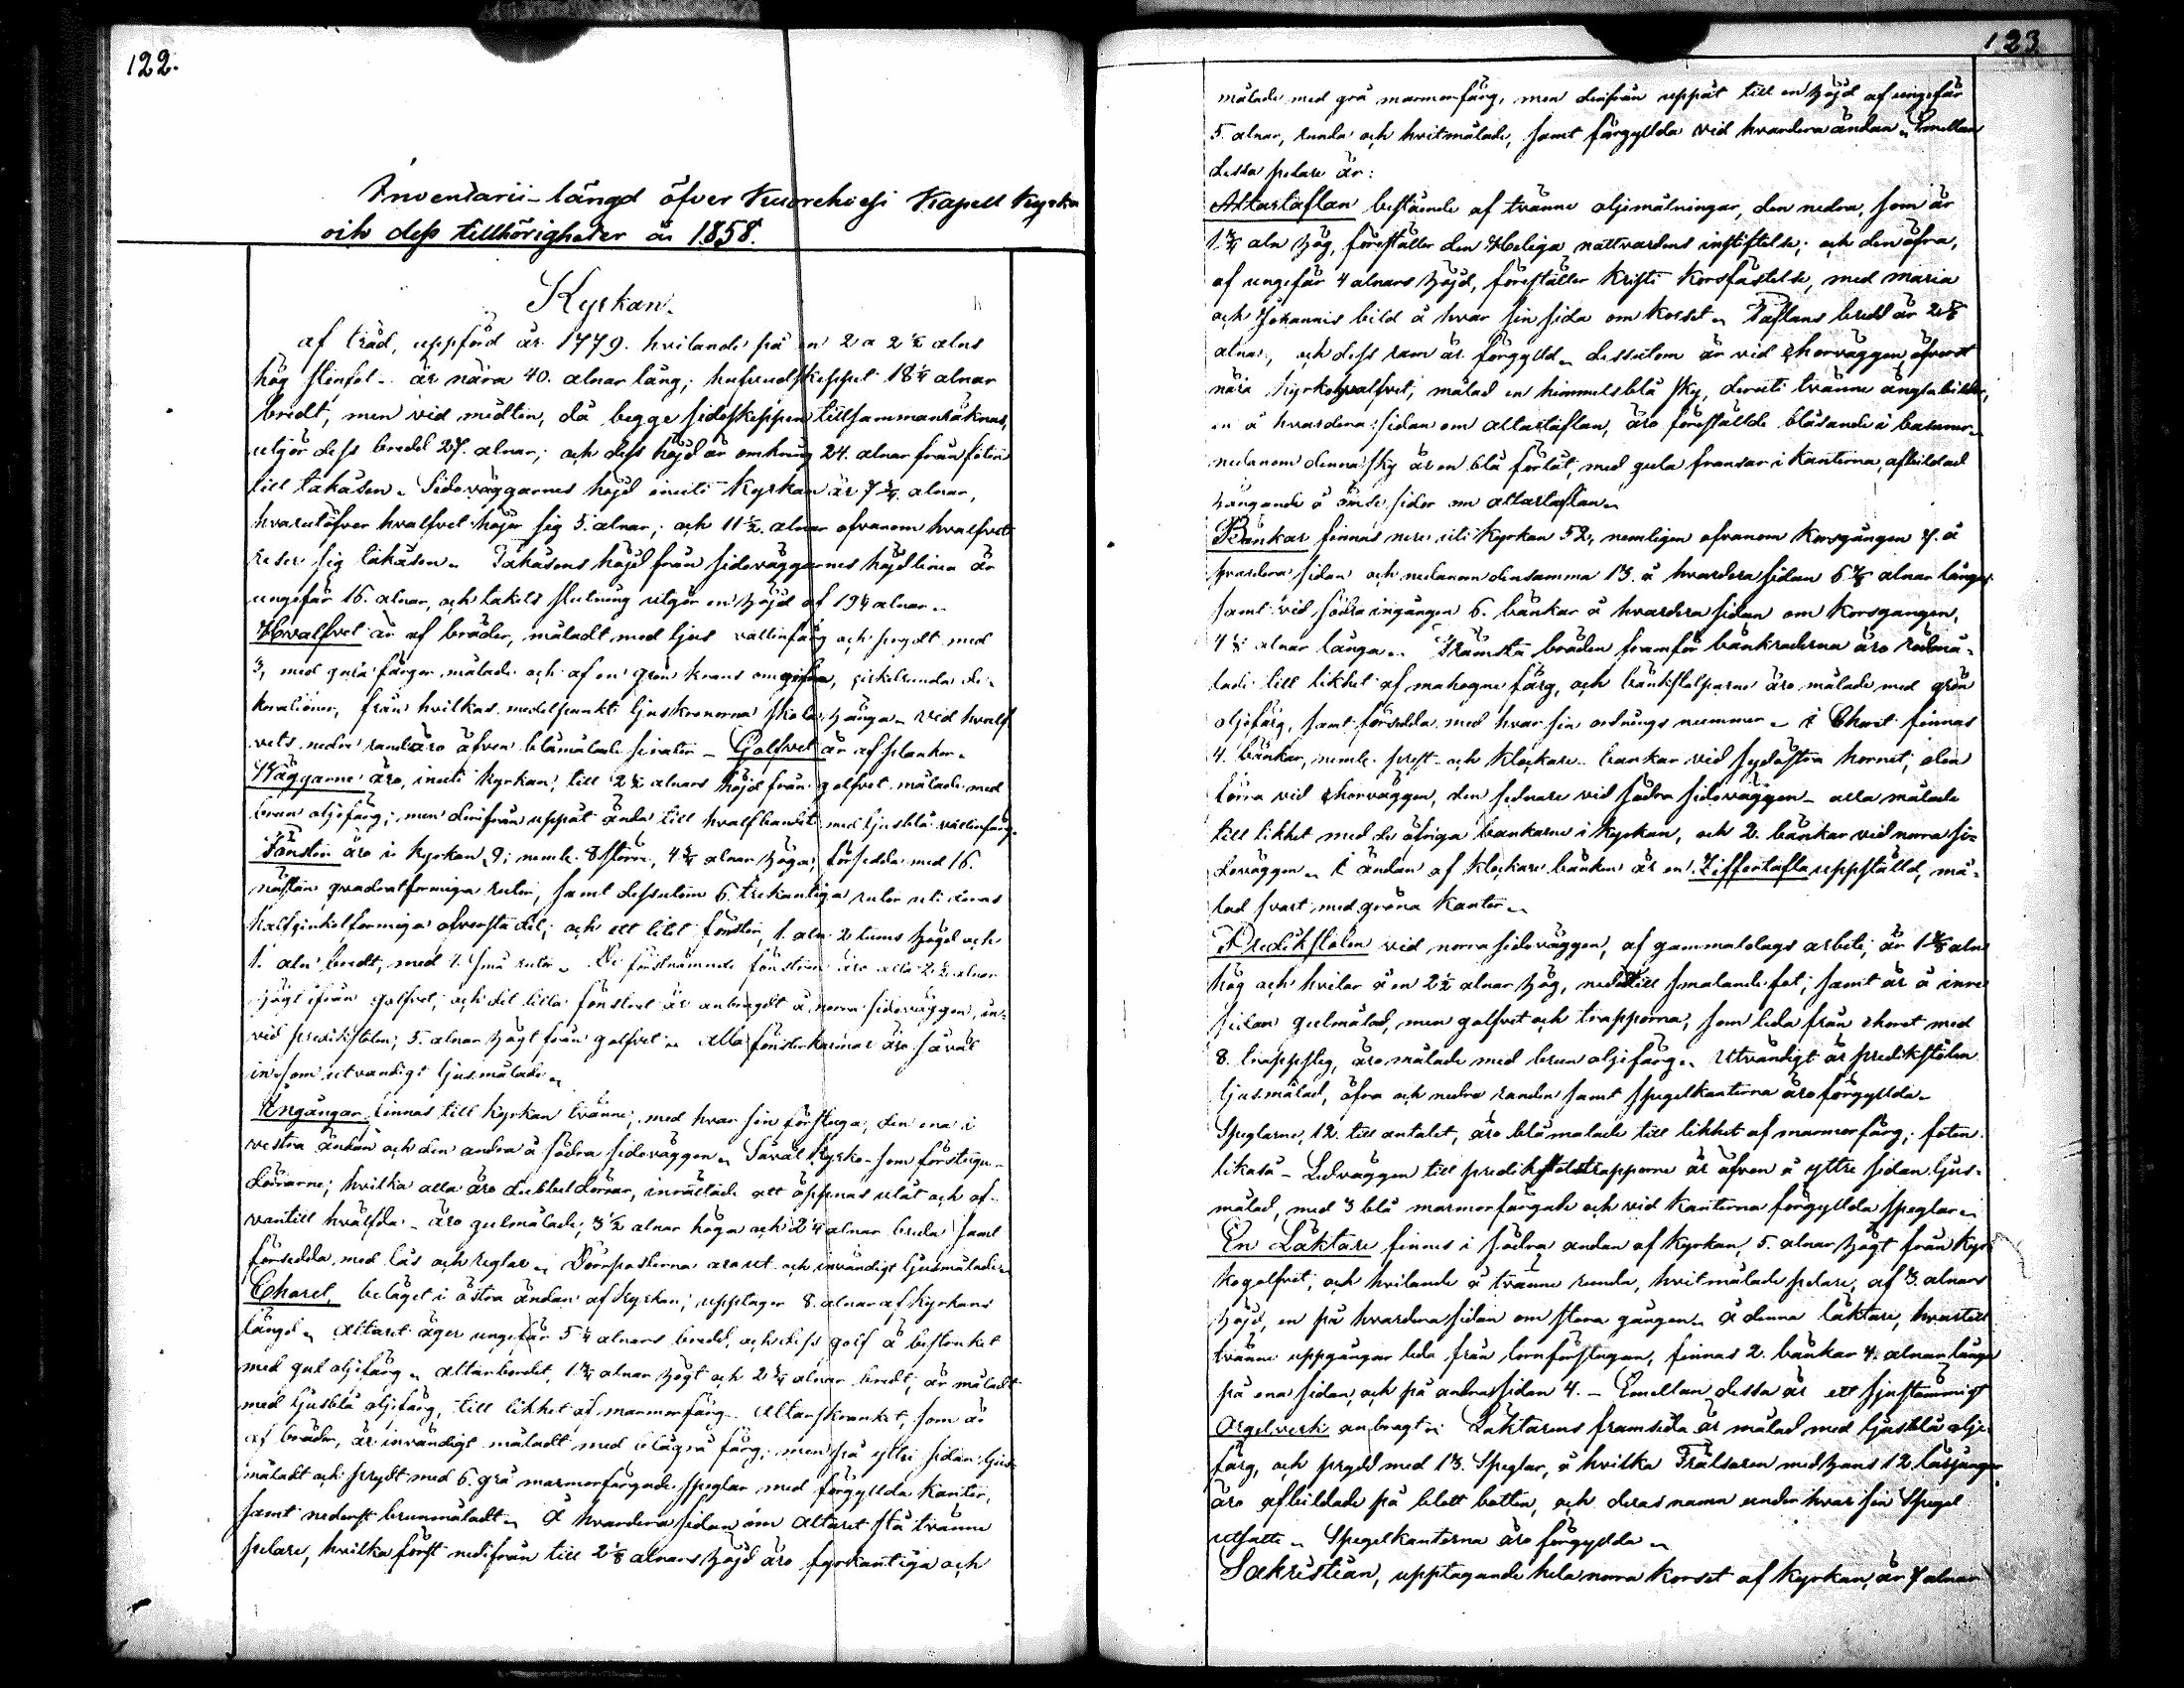 122.
Inventarii-längd öfver Kuorehvesi Kapell Kyrka
och dess tillhörigheter år 1858.
Kyrkan.
af träd, uppförd år 1779. hvilande på en 2 a 2 1/2 alns
hög stenfot. är nära 40. alnar lång; hufvudskeppet 18 1/4 alnar
bredt, men vid midten, då begge sidoskeppen tillsammanräknas,
utgör dess bredd 27. alnar; och dess höjd är omkring 24. alnar från foten
till takåsen. Sidoväggarnes höjd inuti Kyrkan är 7 3/4. alnar,
hvarutöfver hvalfvet höjer sig 5. alnar; och 11 1/2. alnar ofvanom hvalfvet
reser sig takåsen. Takåsens höjd från sidoväggarnes höjdlinea är
ungefär 16. alnar, och takets slutning utgör en höjd af 19 1/4 alnar.
Hvalfvet är af bräder, måladt med ljus vattenfärg och prydt med
3, med gula färger målade och af en grön krans omgifna, cirkelrunda de-
korationer, från hvilkas medelpunkt ljuskronorna skola hänga. vid hvalf
vets nedre rand äro äfven blåmålade sirater. Golfvet är af plankor.
Väggarne äro, inuti kyrkan, till 2 1/2 alnars höjd från golfvet målade med
brun oljefärg; men derifrån uppåt ända till hvalfbandet med ljusblå vattenfärg.
Fönster äro i kyrkan 9; neml. 8 större, 4 3/4 alnar höga, försedda med 16.
nästan quadratformiga rutor, samt dessutom 6. trekantiga rutor uti deras
halfcirkelformiga ofversta del; och ett litet fönster, 1. aln 2 tums höjd och
1. aln bredt, med 4. små rutor. De förstnämnde fönstren äro alla 2 1/2 alnar
högt ifrån golfvet; och det lilla fönstret är anbragdt å norra sidoväggen, in-
vid predikstolen; 5. alnar högt från golfvet. Alla fönsterkarmar äro såväl
in- som utvändigt ljusmålade.
Ingångar finnas till Kyrkan tvänne, med hvar sin förstuga, den ena i
vestra ändan och den andra å södra sidoväggen. Såväl Kyrko- som förstugu-
dörrarne; hvilka alla äro dubbeldörrar, inrättade att öppnas utåt och of-
vantill hvälfda - äro gulmålade; 3 1/2 alnar höga och 2 1/4 alnar breda samt
försedda med lås och reglar. Dörrposterna äro ut- och invändigt ljusmålade.
Choret, beläget i östra ändan af Kyrkan; upptager 8. alnar af Kyrkans
längd. Altaret äger ungefär 5 1/4 alnars bredd, och dess golf är bestruket
med gul oljefärg. Altarbordet, 1 3/4 alnar högt och 2 3/4 alnar bredt, är måladt
med ljusblå oljefärg, till likhet af marmorfärg. Altarskranket, som är
af bräder, är invändigt måladt med blågrå färg; men på yttre sidan ljus-
måladt och prydt med 6. grå marmorfärgade speglar med förgyllda kanter,
samt nederst brunmåladt. Å hvardera sidan om Altaret stå tvänne
pelare, hvilka först nedifrån till 2 1/8 alnars höjd äro fyrkantiga och
123
målade med grå marmorfärg, men derifrån uppåt till en höjd af ungefär
5. alnar, runda och hvitmålade, samt förgyllda vid hvardera ändan. Emellan
dessa pelare är:
Altartaflan bestående af tvänne oljemålningar, den nedra, som är
1 3/4 aln hög, föreställer den Heliga nattvardens instiftelse; och den öfra,
af ungefär 4 alnars höjd, föreställer Kristi Korsfästelse, med Maria
och Johannis bild å hvar sin sida om korset. Taflans bredd är
alnar, och dess ram är förgylld. dessutom är vid chorväggen öfverst
nära kyrkohvalfvet; målad en himmelsblå sky, deruti tvänne änglabilder,
en å hvardera sidan om altartaflan, äro föreställde blåsande i basuner.
nedanom denna sky är en blå förlåt, med gula fransar i kanterna, afbildad
hängande å ömse sidor om altartaflan.
Bänkar finnas nere uti Kyrkan 52, nemligen ofvanom korsgången 7. å
hvardera sidan och nedanom densamma 13. å hvardera sidan alnar långa
samt vid södra ingången 6. bänkar å hvardera sidan om Korsgången,
alnar långa. Främsta bräden framför bänkraderna äro rödmå-
lade till likhet af mahogne färg, och bänkstolparne äro målade med grön
oljefärg, samt försedda med hvar sin ordnings nummer. i Choret finnas
4. bänkar, neml. prest- och Klockare- bänkar vid sydöstra hörnet; den
förra vid chorväggen, den sednare vid södra sidoväggen - alla målade
till likhet med de öfriga bänkarne i kyrkan, och 2. bänkar vid norra si-
doväggen. I ändan af Klockare bänken är en Ziffertafla uppställd, må-
lad svart med gröna kanter.
Predikstolen vid norra sidoväggen, af gammaldags arbete, är 1 5/8 aln
hög och hvilar å en 2 1/2 alnar hög, nedåttill smalande fot; samt är å inre
sidan gulmålad, men golfvet och trapporna, som leda från choret med
8. trappsteg, äro målade med brun oljefärg. Utvändigt är predikstolen
ljusmålad, öfra och nedra randen samt spegelkanterna äro förgyllda.
Speglarne, 12. till antalet, äro blåmålade till likhet af marmorfärg; foten
likaså. Ledväggen till predikstolstrapporne är äfven å yttre sidan ljus-
målad, med 3 blå marmorfärgade och vid kanterna förgyllda speglar.
En Läktare finnes i södra ändan af Kyrkan, 5. alnar högt från Kyr-
kogolfvet, och hvilande å tvänne runda, hvitmålade pelare, af 3. alnars
höjd, en på hvardera sidan om stora gången. Å denna läktare, hvartill
tvänne uppgångar leda från tornförstugan, finnas 2. bänkar 4. alnar långa
på ena sidan, och på andra sidan 4. - Emellan dessa är ett sjustämmigt
Orgelverk anbragt. Läktarens framsida är målad med ljusblå olje-
färg, och prydd med 13. Speglar, å hvilka Frälsaren med hans 12 lärjungar
äro afbildade på blått botten, och deras namn under hvar sin Spegel
utsatte. Spegelkanterna äro förgyllda.
Sakristian, upptagande hela norra korset af Kyrkan, är 7 alnar